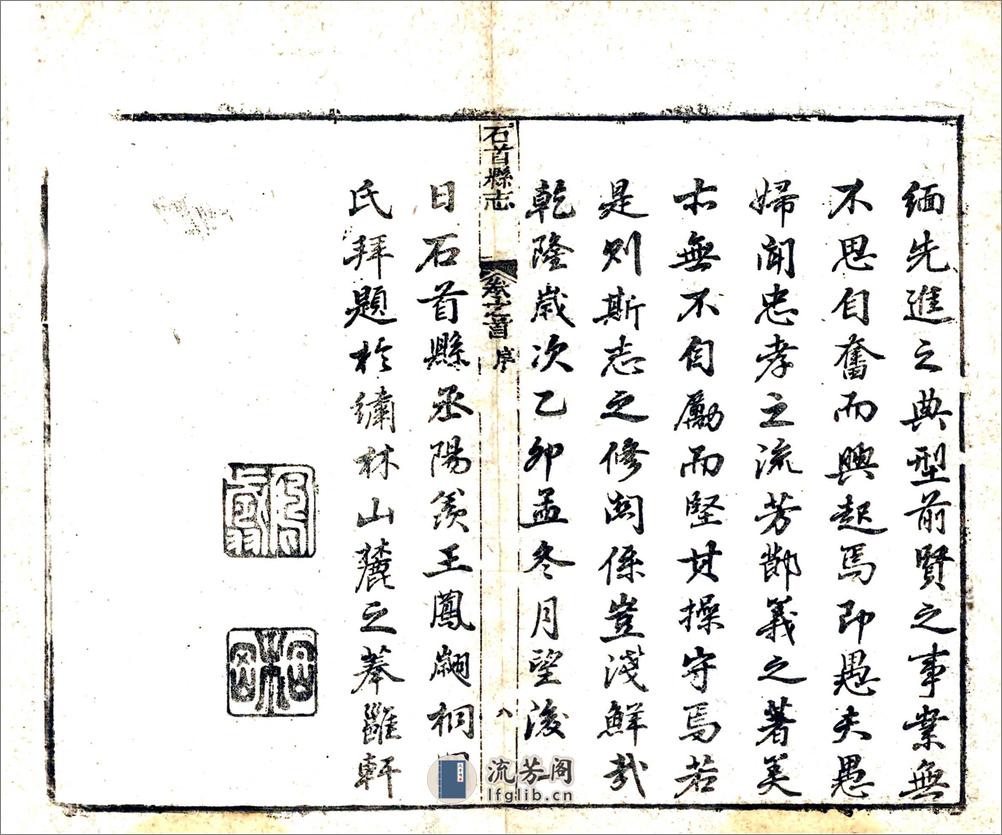 緬先進之典型前賢之事業無
不思自奮而興起焉即愚夫愚
婦聞忠孝之流芳節義之著美
亦無不自勵而堅其操守焉若
是則斯志之修關係豈淺鮮哉
乾隆歲次乙卯孟冬月望後
日石首縣丞陽羨王鳳翽桐
氏拜題於繡林山麓之
軒
石首縣志
卷之首
序
八
流芳阁
lfglib.cn